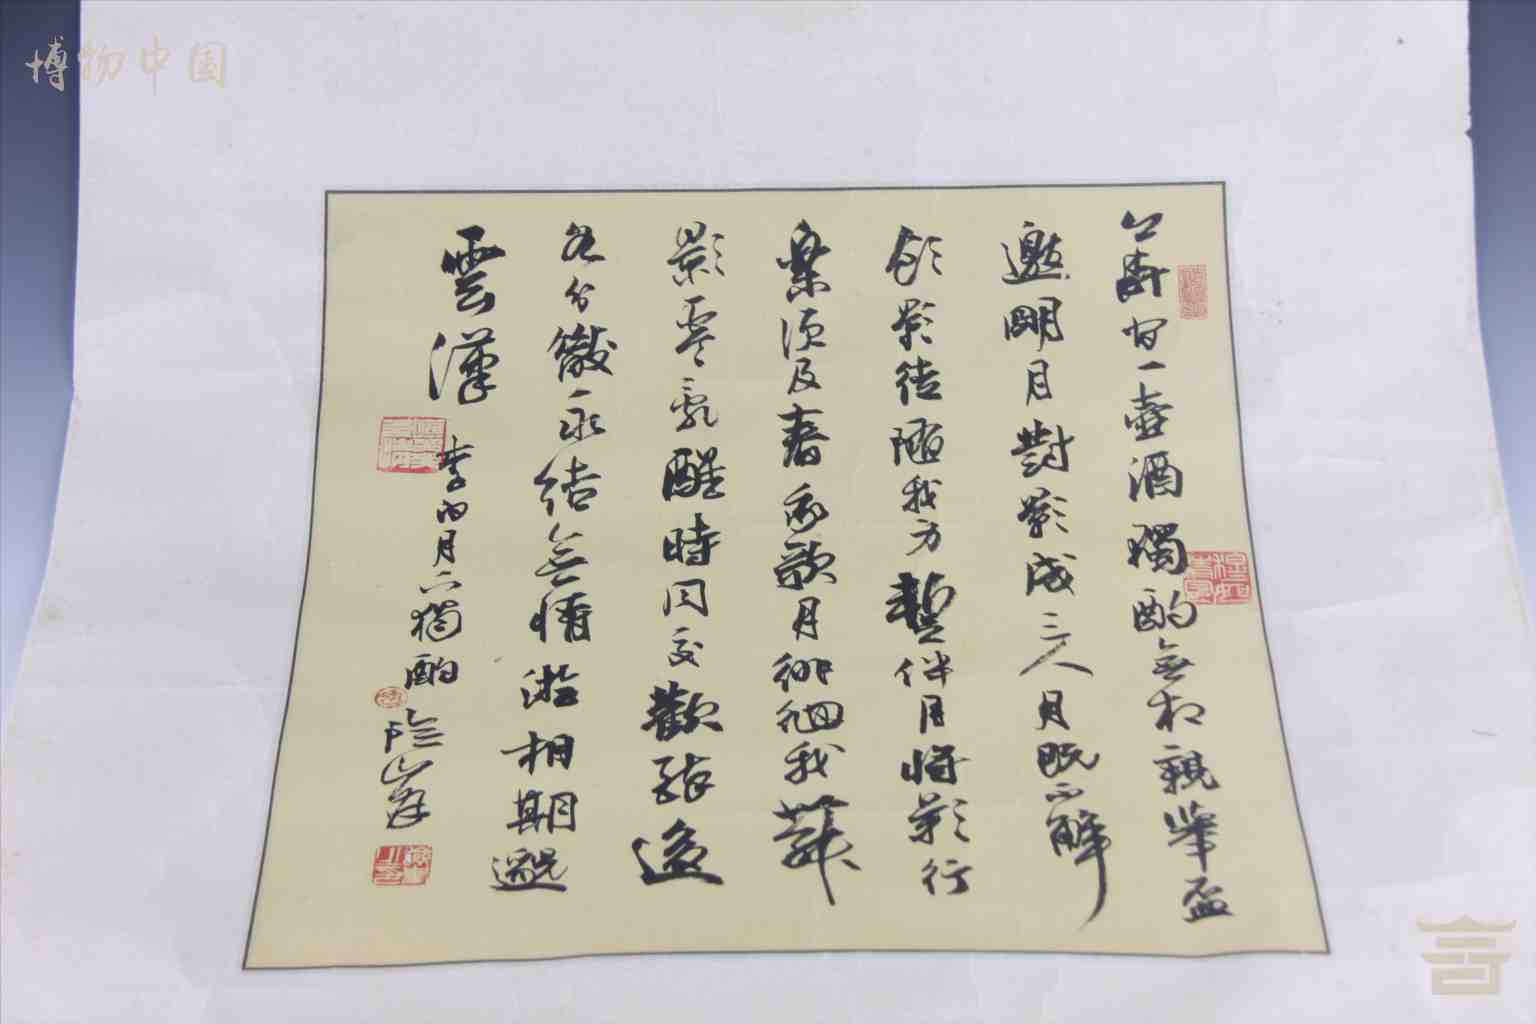 博物中国
間一壺酒獨酌無相親舉盃
邀明月對影成三人月既不解
飲影徒隨我身暫伴月將影行
樂須及春我歌月徘徊我舞
影零亂醒時同交歡醉後
各分散永結無情遊相期邈
雲漢
李白月下獨酌